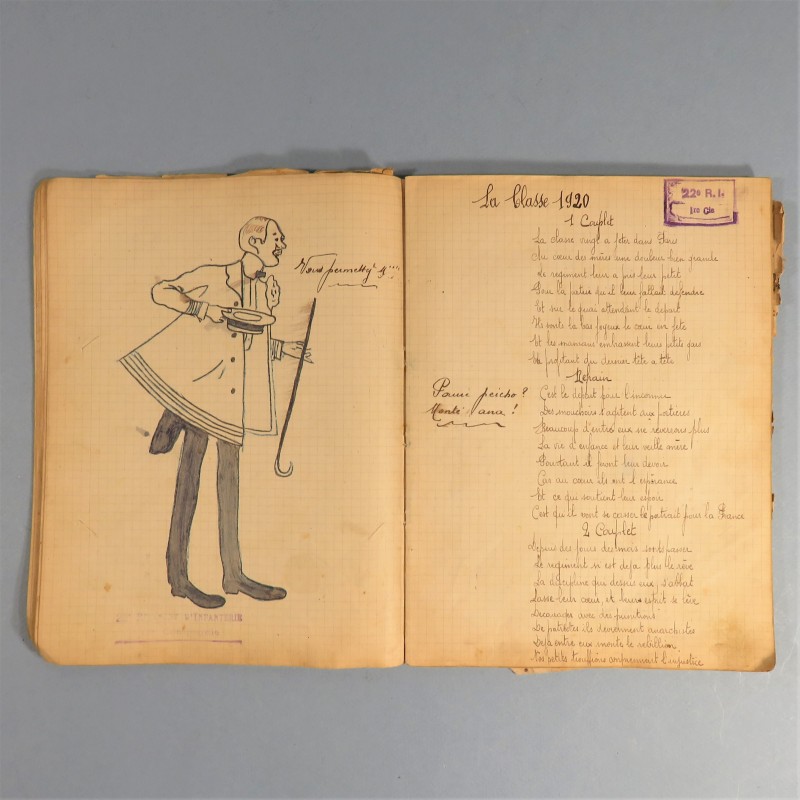 Vous permettez
D'INFANTERIE
La Classe 1920
22e R.I.
1re Cie
1 Couplet
La classe vingt a fêter dans Paris
Au cœur des mères une douleur bien grande
Le regiment leur a pris leur petit
Pour la patrie qu'il leur fallait defendre
Et sur le quai attendant le depart
Ils sont la bas joyeux le cœur en fete
Et les mamans embrassent leurs petits gars
En profitant du dernier tête a tête
Refrain
C'est le depart pour l'inconnu
Des mouchoirs s'agitent aux portieres
Beaucoup d'entre eux ne reverrons plus
La vie d'enfance et leur veille mère
Pourtant il feront leur devoir
Car au cœur ils ont l'espérance
Et ce qui soutient leur espoir
C'est qu'il vont se casser le portrait pour la France
2 Couplet
Depuis des jours des mois sont passer
Le regiment n'est deja plus le rêve
La discipline qui dessus eux s'abbat
Lasse leur cœur, et leur esprit se lève
avec des punitions
De patriotes ils deviennent anarchistes
Deja entre eux monte la rebellion
Les petits troufions comprennent l'injustice